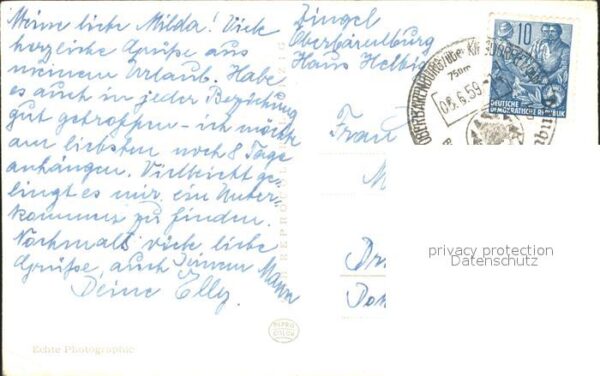 Meine liebe Milda! Viele
herzliche Grüße aus
meinem Urlaub. Habe
es auch in jeder Beziehung
gut getroffen – ich möchte
am liebsten noch 8 Tage
anhängen. Vielleicht ge-
lingt es mir ein Unter-
kommen zu finden.
Nochmals viele liebe
Grüße, auch Deinem Mann
Deine Elly.
Echte Photographie
Zingel
Oberbärenburg
Haus
Frau
M
Dr
10
DEUTSCHE
DEMOKRATISCHE REPUBLIK
OBERBÄRENBURG
750m
6.59
privacy protection
Datenschutz